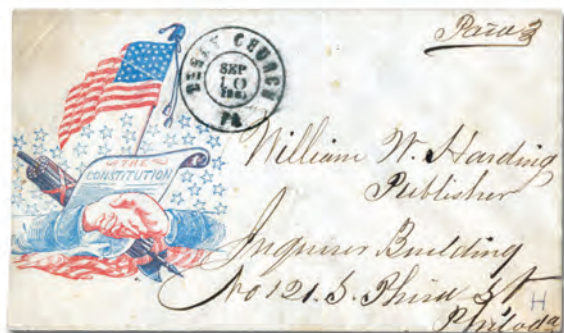 Paid 3
DERRY CHURCH
SEP
10
PA
THE
CONSTITUTION
William W. Harding
Publisher
Inquirer Building
No 121. S. Third St
H
Philada